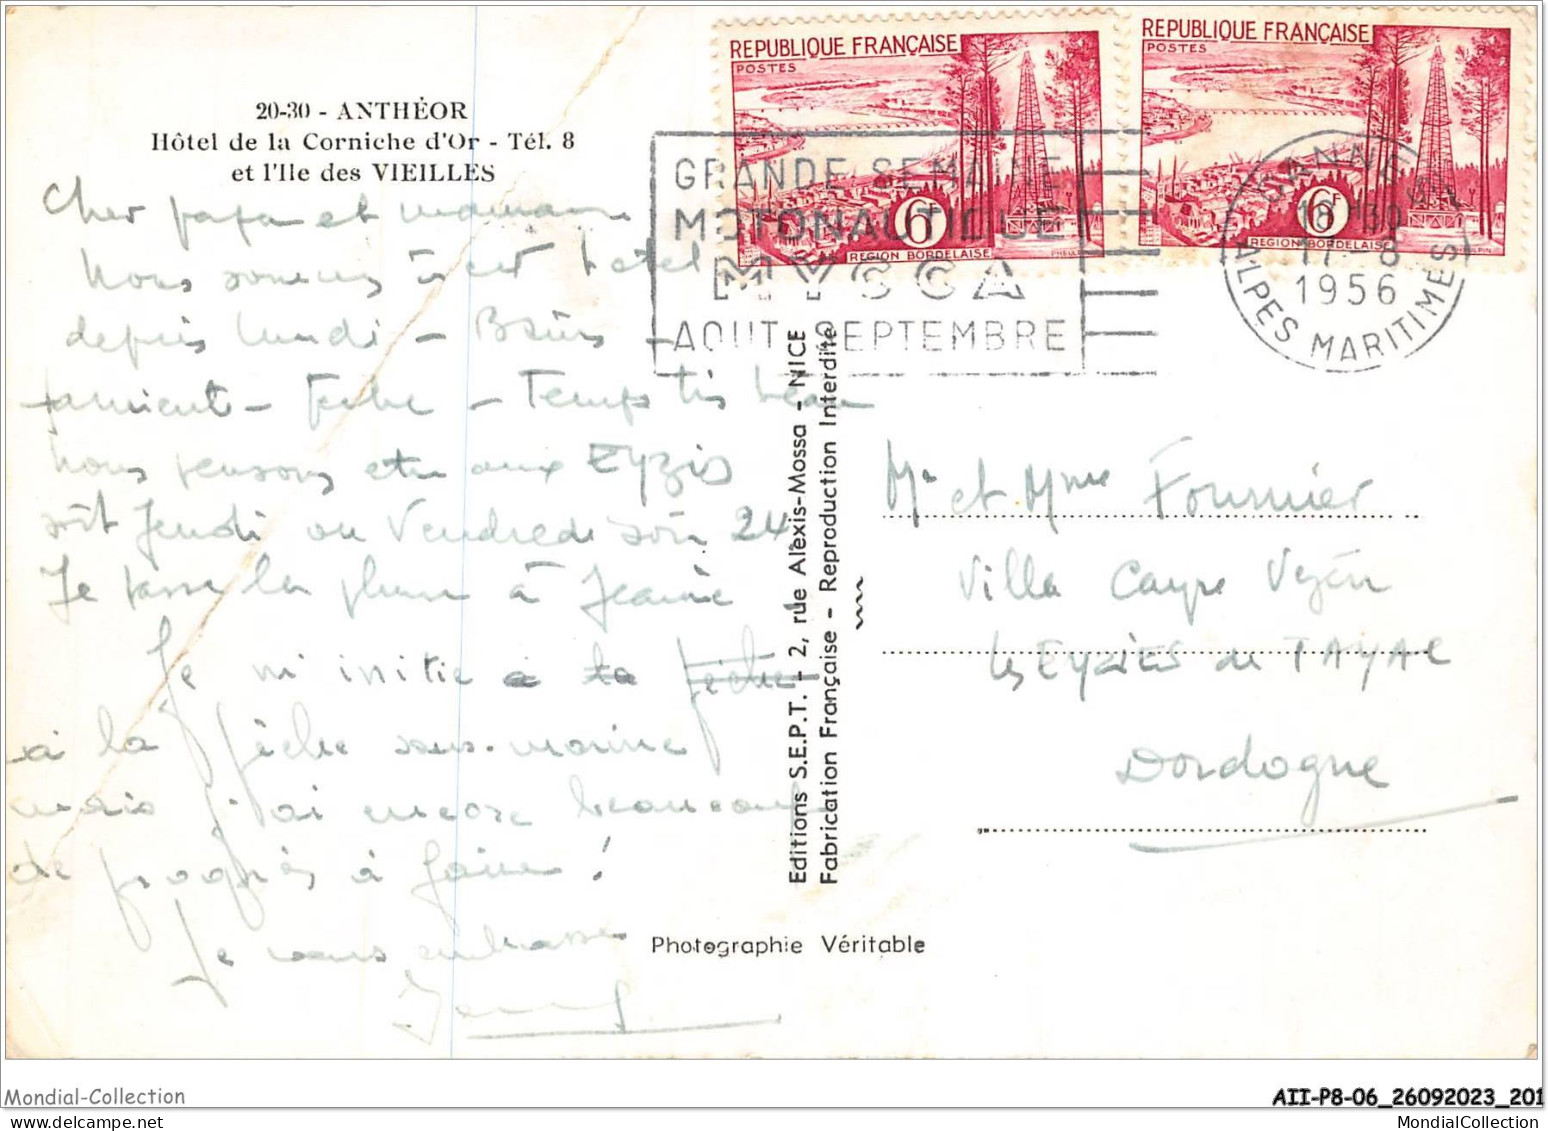 20-30 - ANTHÉOR
Hôtel de la Corniche d'Or - Tél. 8
et l'Ile des VIEILLES
Cher papa et maman
Nous sommes à cet hotel
depuis lundi - Bains -
farniente - Temps très beau
Nous pensons être aux Eyzies
soit Jeudi ou Vendredi soir 24
Je passe la plume à
Je m'initie à la pêche
à la pêche sous-marine
mais j'ai encore beaucoup
de progrès à faire !
Je vous embrasse
REPUBLIQUE FRANÇAISE
POSTES
6F
REGION BORDELAISE
REPUBLIQUE FRANÇAISE
POSTES
6F
REGION BORDELAISE
GRANDE SEMAINE
MOTONAUTIQUE
MYCCA
AOUT SEPTEMBRE
CANNES
18 H 30
17-8
1956
ALPES MARITIMES
Editions S.E.P.T. - 2, rue Alexis-Mossa - NICE
Fabrication Française - Reproduction Interdite
Mr et Mme Fournier
Villa
les EYZIES de TAYAC
Dordogne
Photographie Véritable
Mondial-Collection
AII-P8-06_26092023_201
MondialCollection